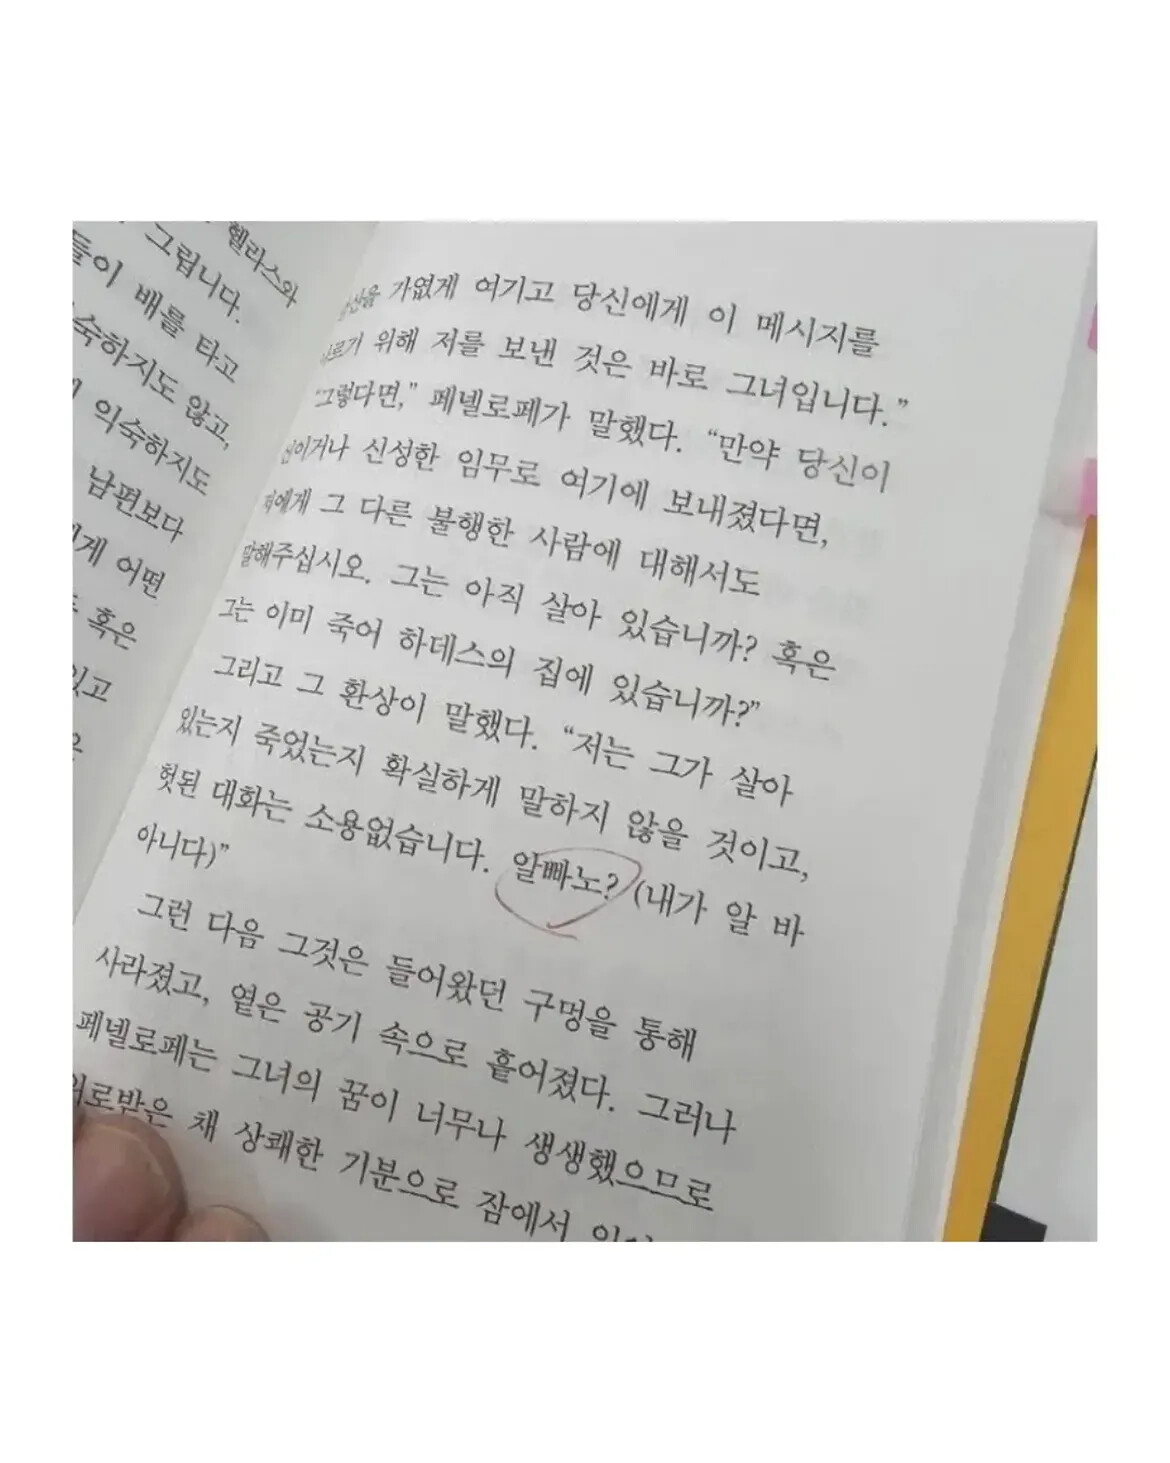 헬라스와
그럽니다.
들이 배를 타고
숙하지도 않고,
익숙하지도
남편보다
게 어떤
혹은
있고
가엾게 여기고 당신에게 이 메시지를
위해 저를 보낸 것은 바로 그녀입니다.”
“그렇다면,” 페넬로페가 말했다. “만약 당신이
신이거나 신성한 임무로 여기에 보내졌다면,
저에게 그 다른 불행한 사람에 대해서도
말해주십시오. 그는 아직 살아 있습니까? 혹은
그는 이미 죽어 하데스의 집에 있습니까?”
그리고 그 환상이 말했다. “저는 그가 살아
있는지 죽었는지 확실하게 말하지 않을 것이고,
헛된 대화는 소용없습니다. 알빠노? (내가 알 바
아니다)”
그런 다음 그것은 들어왔던 구멍을 통해
사라졌고, 옅은 공기 속으로 흩어졌다. 그러나
페넬로페는 그녀의 꿈이 너무나 생생했으므로
위로받은 채 상쾌한 기분으로 잠에서